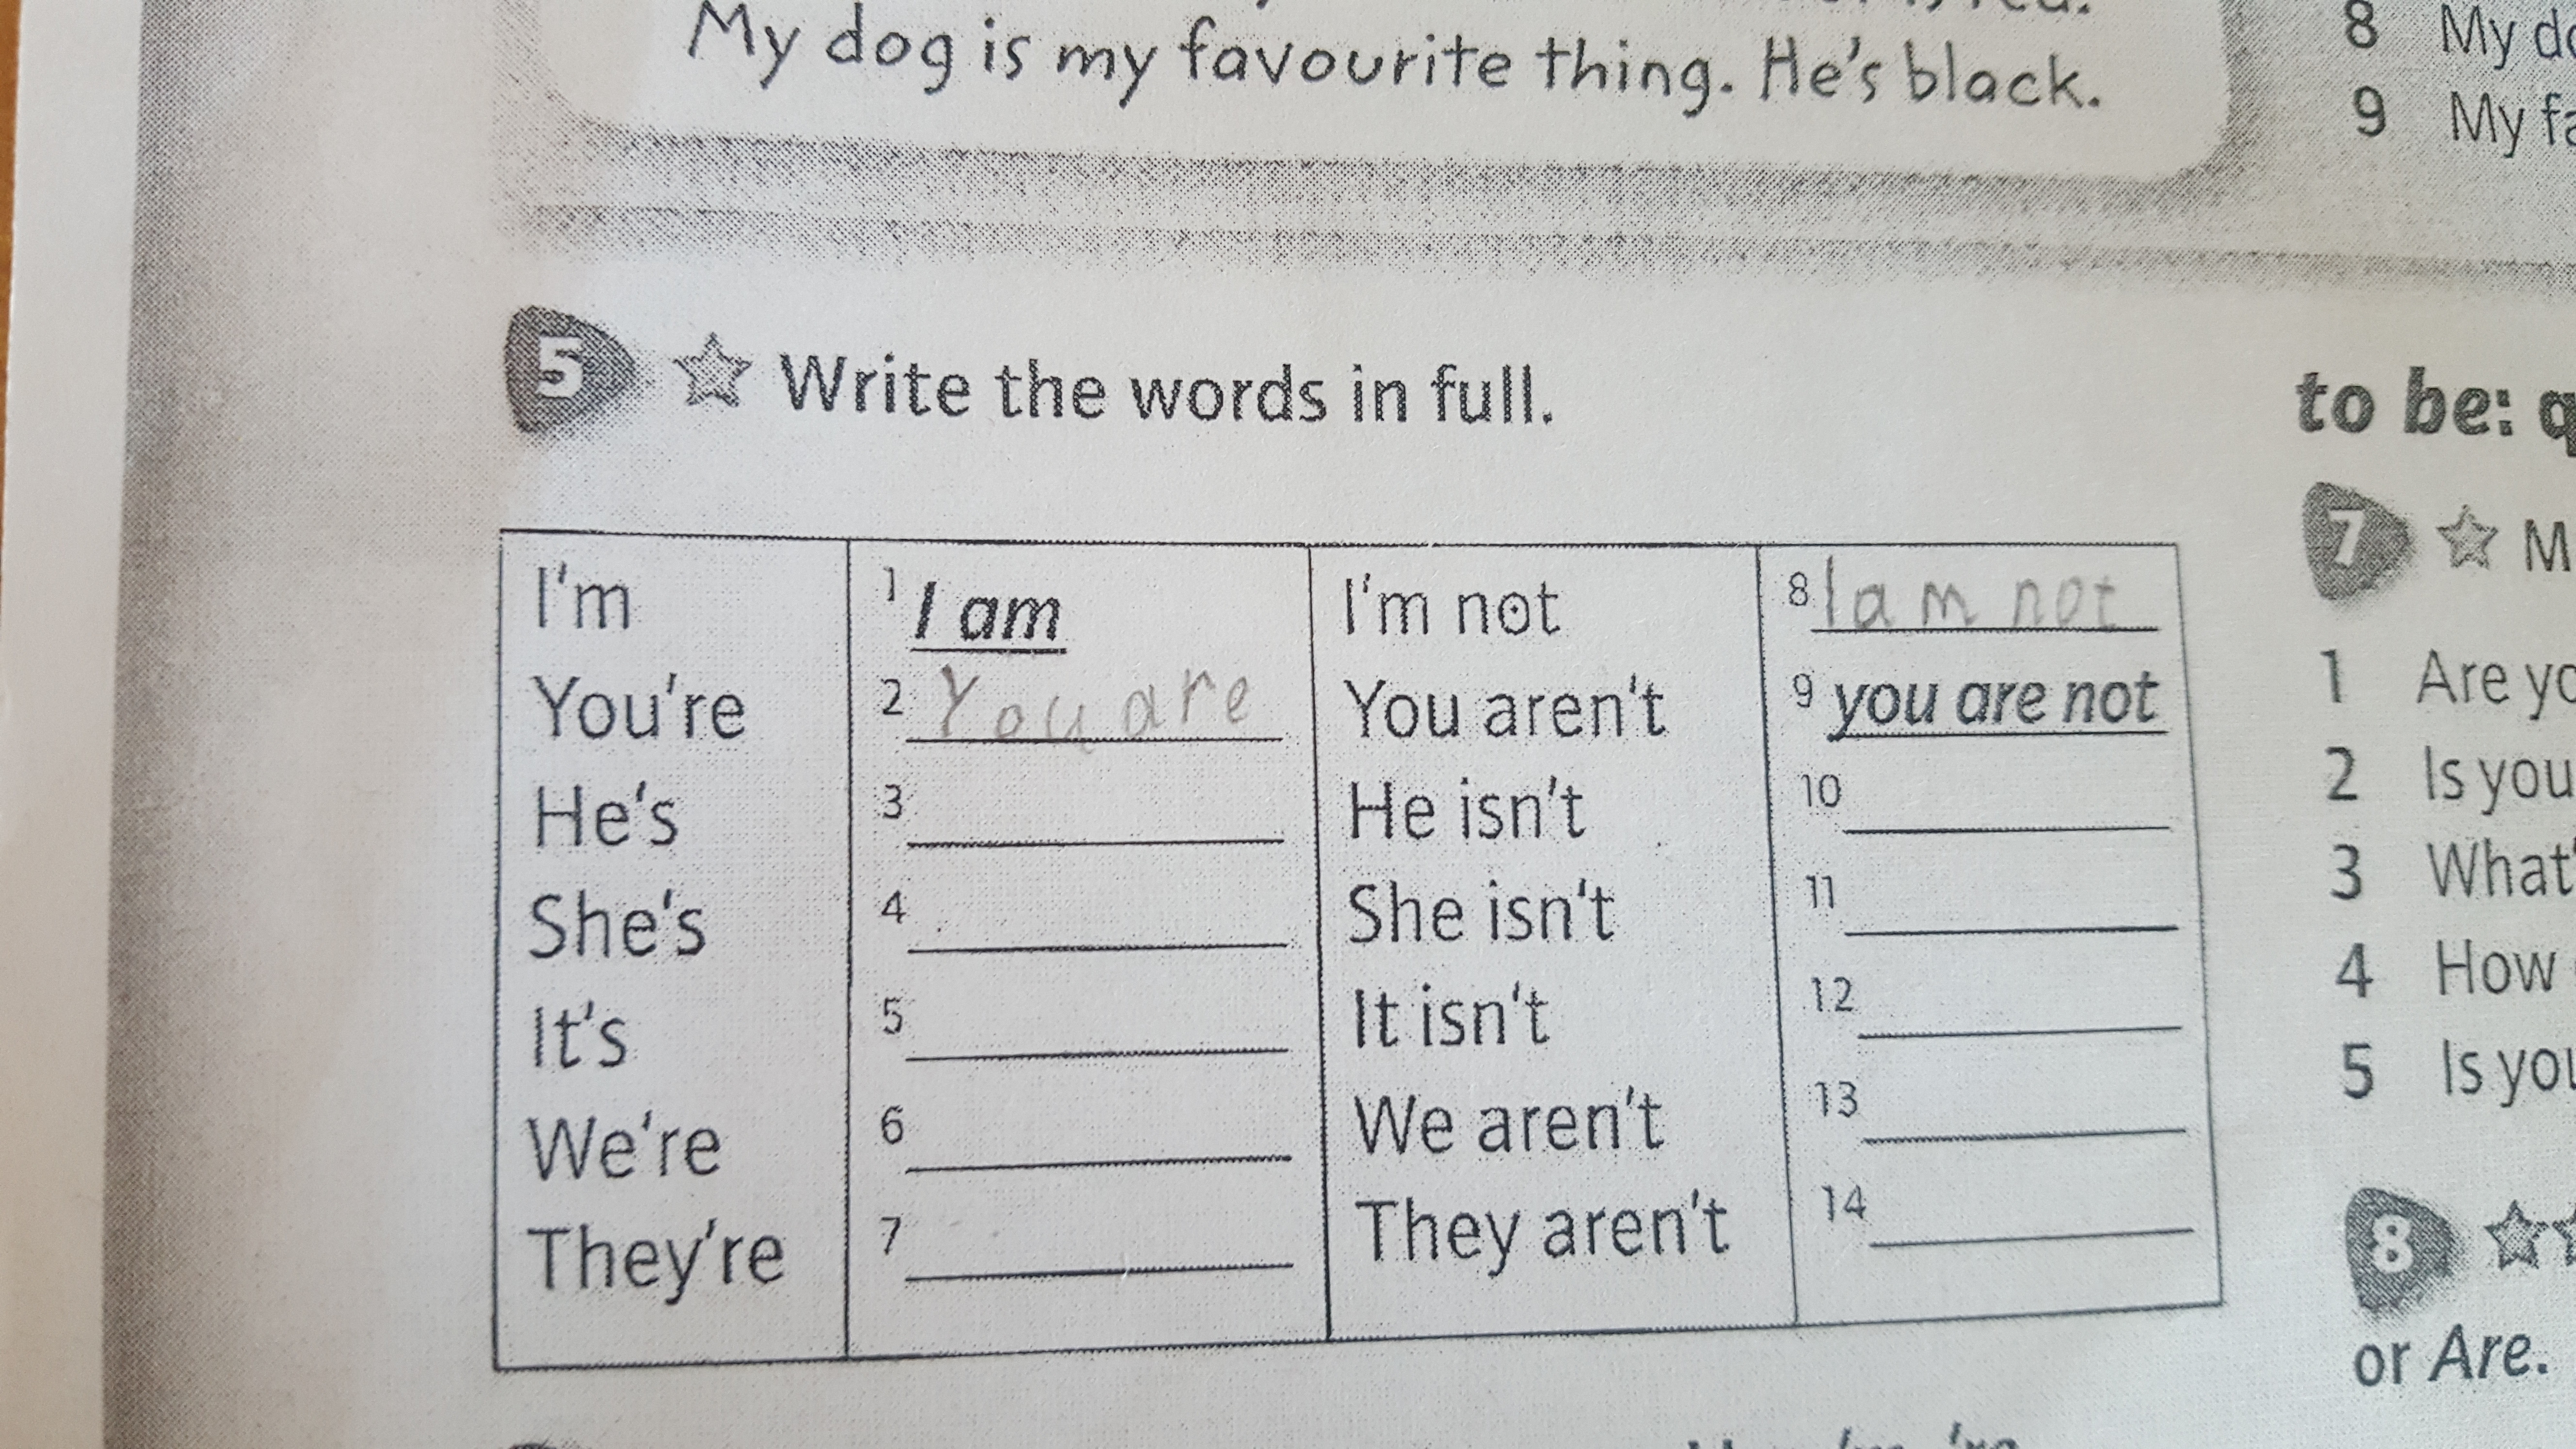 My dog is my favourite thing. He's black.
8 My
9 My
5 Write the words in full.
I'm 1 I am I'm not 8 I am not
You're 2 You are You aren't 9 you are not
He's 3 He isn't 10
She's 4 She isn't 11
It's 5 It isn't 12
We're 6 We aren't 13
They're 7 They aren't 14
to be:
7
1 Are
2 Is
3 What
4 How
5 Is
8
or Are.